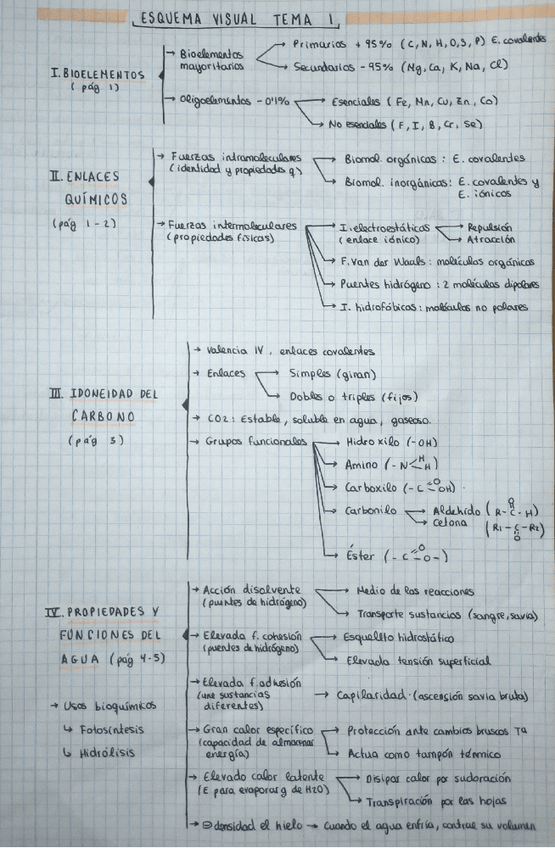 ESQUEMA VISUAL TEMA 1.
I. BIOELEMENTOS
(pág 1)
→ Bioelementos mayoritarios
→ Primarios + 95% (C, N, H, O, S, P) E. covalentes
→ Secundarios - 95% (Mg, Ca, K, Na, Cl)
→ Oligoelementos - 0'1%
→ Esenciales (Fe, Mn, Cu, Zn, Co)
→ No esenciales (F, I, B, Cr, Se)
II. ENLACES
QUÍMICOS
(pág 1-2)
→ Fuerzas intramoleculares
(identidad y propiedades q)
→ Biomol. orgánicas: E. covalentes
→ Biomol. inorgánicas: E. covalentes y
E. iónicos
→ Fuerzas intermoleculares
(propiedades físicas)
→ I. electroestáticas
(enlace iónico)
→ Repulsión
→ Atracción
→ F. Van der Waals: moléculas orgánicas
→ Puentes hidrógeno: 2 moléculas dipolares
→ I. hidrofóbicas: moléculas no polares
III. IDONEIDAD DEL
CARBONO
(pág 3)
→ Valencia IV, enlaces covalentes
→ Enlaces
→ Simples (giran)
→ Dobles o triples (fijos)
→ CO2: Estable, soluble en agua, gaseoso.
→ Grupos funcionales
→ Hidroxilo (-OH)
→ Amino (-N<H H)
→ Carboxilo (-C=O OH)
→ Carbonilo
→ Aldehído (R-C-H) O
→ Cetona (R1-C-R2) O
→ Éster (-C=O O-)
IV. PROPIEDADES Y
FUNCIONES DEL
AGUA (pág 4-5)
→ Usos bioquímicos
↳ Fotosíntesis
↳ Hidrólisis
→ Acción disolvente
(puentes de hidrógeno)
→ Medio de las reacciones
→ Transporte sustancias (sangre, savia)
→ Elevada f. cohesión
(puentes de hidrógeno)
→ Esqueleto hidrostático
→ Elevada tensión superficial
→ Elevada f. adhesión
(une sustancias
diferentes)
→ Capilaridad (ascensión savia bruta)
→ Gran calor específico
(capacidad de almacenar
energía)
→ Protección ante cambios bruscos Tª
→ Actua como tampón térmico
→ Elevado calor latente
(E para evaporar g de H2O)
→ Disipar calor por sudoración
→ Transpiración por las hojas
→ ⊖ densidad el hielo → Cuando el agua enfría, contrae su volumen